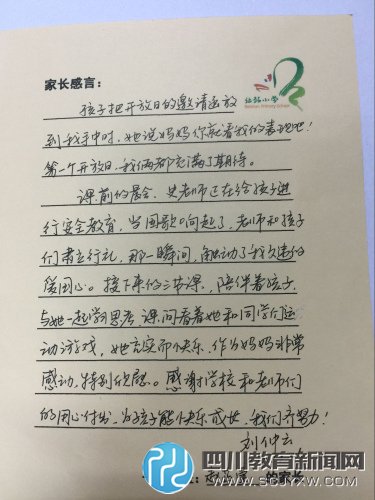 站东小学
家长感言:
孩子把开放日的邀请函放
到我手中时,她说妈妈你就看我的表现吧!
第一个开放日,我俩都充满了期待。
课前的晨会,史老师正在给孩子进
行安全教育,当国歌响起了,老师和孩子
们肃立行礼,那一瞬间,触动了我久违的
爱国心。接下来的三节课,陪伴着孩子
与她一起学习思考,课间看着她和同学们运
动游戏,她充实而快乐,作为妈妈非常
感动,特别欣慰。感谢学校和老师们
的用心付出,为孩子能快乐成长,我们齐努力!
刘仲云
的家长
四川教育新闻网